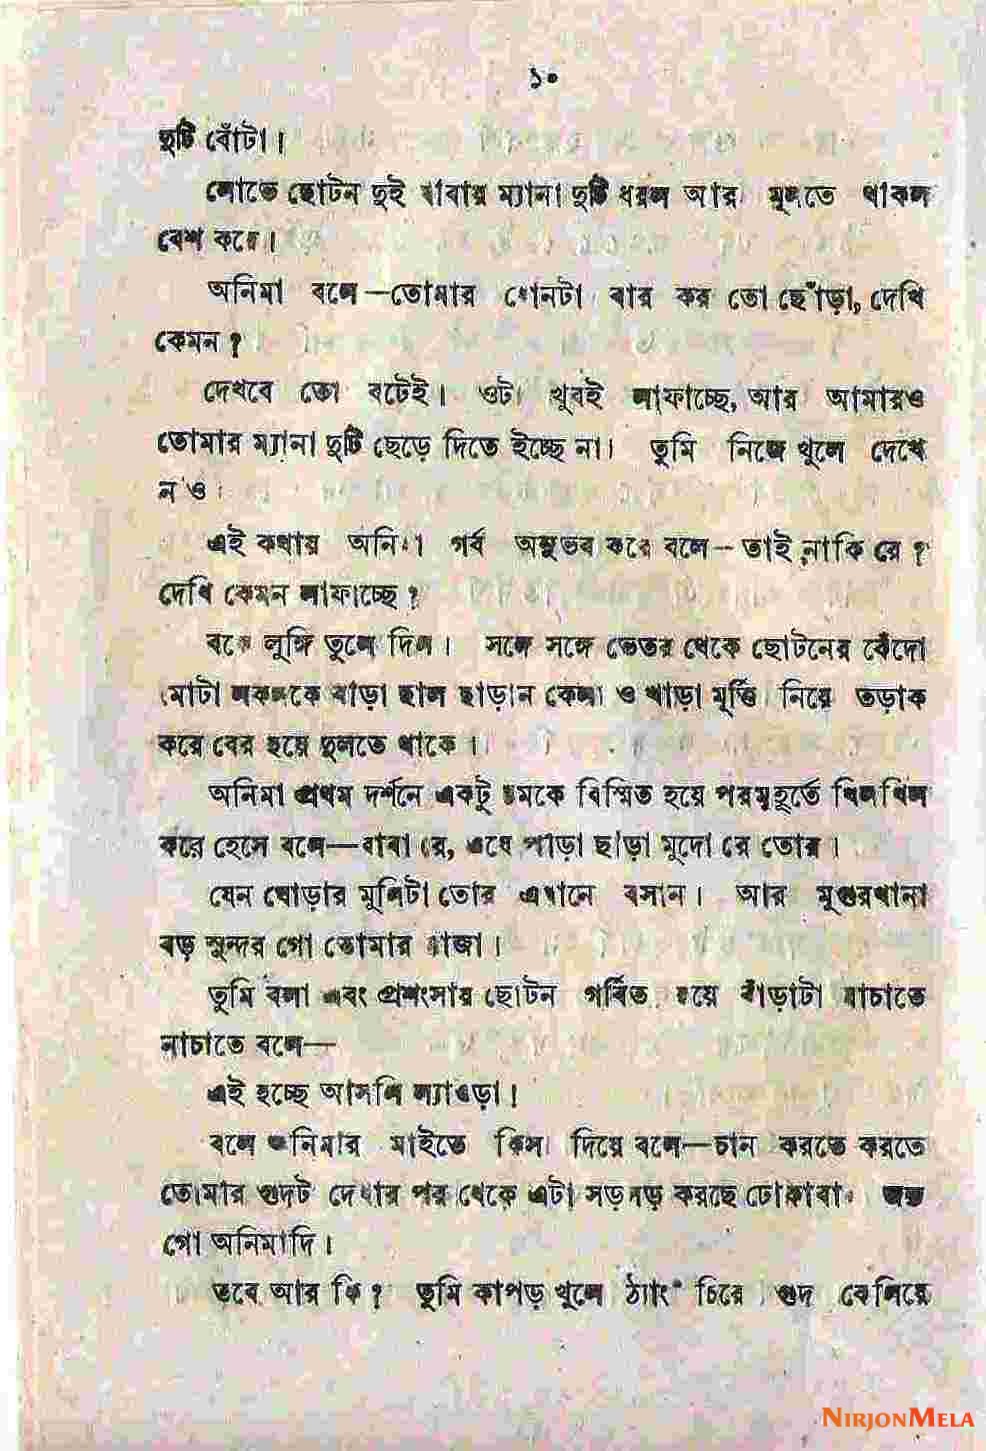 ১০
দুটি বোঁটা।
লোভে ছোটন দুই থাবায় ম্যানা দুটি ধরল আর মূলতে থাকল
বেশ করে।
অনিমা বলে—তোমার ধোনটা বার কর তো ছোঁড়া, দেখি
কেমন?
দেখবে তো বটেই। ওটা খুবই লাফাচ্ছে, আর আমারও
তোমার ম্যানা দুটি ছেড়ে দিতে ইচ্ছে না। তুমি নিজে খুলে দেখে
নাও।
এই কথায় অনিমা গর্ব অনুভব করে বলে—তাই নাকি রে?
দেখি কেমন লাফাচ্ছে?
বলে লুঙ্গি তুলে দিল। সঙ্গে সঙ্গে ভেতর থেকে ছোটনের কেঁদো
মোটা লকলকে বাড়া ছাল ছাড়ান কেলা ও খাড়া মূর্ত্তি নিয়ে তড়াক
করে বের হয়ে দুলতে থাকে।
অনিমা প্রথম দর্শনে একটু চমকে বিস্মিত হয়ে পরমূহূর্তে খিলখিল
করে হেসে বলে—বাবা রে, এযে ছাড়া মুদো রে তোর।
যেন ঘোড়ার মুদিটা তোর এখানে বসান। আর মুগুরখানা
বড় সুন্দর গো তোমার রাজা।
তুমি বলা এবং প্রশংসার ছোটন গর্বিত হয়ে বাঁড়াটা নাচাতে
নাচাতে বলে—
এই হচ্ছে আসলি ল্যাওড়া!
বলে অনিমার মাইতে কিল দিয়ে বলে—চান করতে করতে
তোমার গুদট দেখার পর থেকে এটা সড়সড় করছে ঢোকাবার জন্য
গো অনিমাদি।
তবে আর কি? তুমি কাপড় খুলে ঠ্যাং চিরে গুদ কেলিয়ে
NIRJONMELA